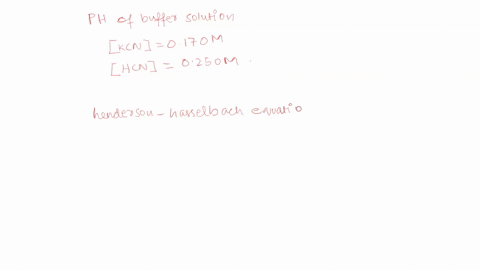 PH of buffer solution
[KCN] = 0.170M
[HCN] = 0.250M
henderson - hasselbach equatio